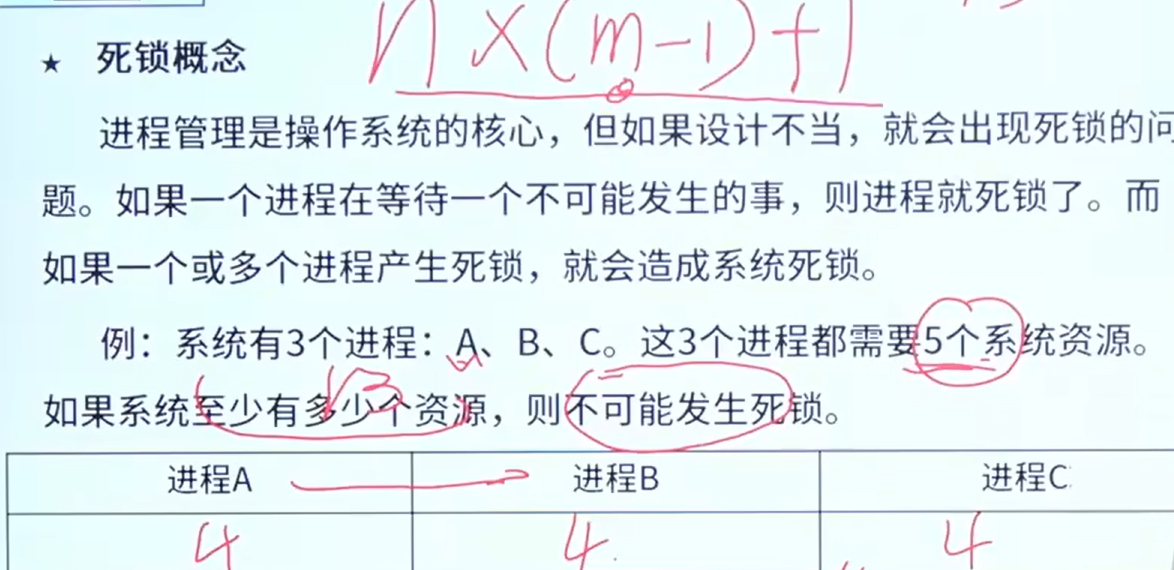 n×(m-1)+1
★ 死锁概念
进程管理是操作系统的核心，但如果设计不当，就会出现死锁的问
题。如果一个进程在等待一个不可能发生的事，则进程就死锁了。而
如果一个或多个进程产生死锁，就会造成系统死锁。
例：系统有3个进程：A、B、C。这3个进程都需要5个系统资源。
如果系统至少有多少个资源，则不可能发生死锁。
13
进程A 进程B 进程C
4 4 4